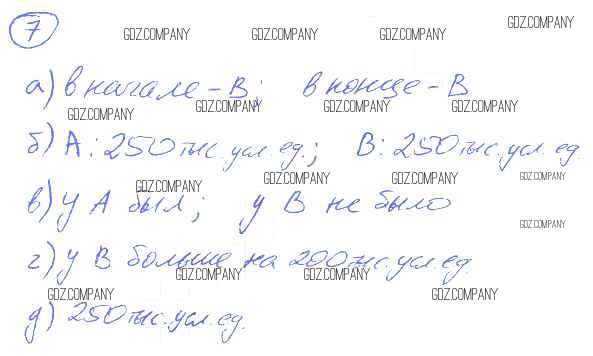 7
GDZ.COMPANY GDZ.COMPANY GDZ.COMPANY GDZ.COMPANY
а) в начале - В; в конце - В
GDZ.COMPANY GDZ.COMPANY GDZ.COMPANY GDZ.COMPANY
б) А: 250 тыс. усл. ед.; В: 250 тыс. усл. ед.
GDZ.COMPANY GDZ.COMPANY GDZ.COMPANY GDZ.COMPANY
в) у А был; у В не было
GDZ.COMPANY
г) у В больше на 200 тыс. усл. ед.
GDZ.COMPANY GDZ.COMPANY
GDZ.COMPANY GDZ.COMPANY
д) 250 тыс. усл. ед.